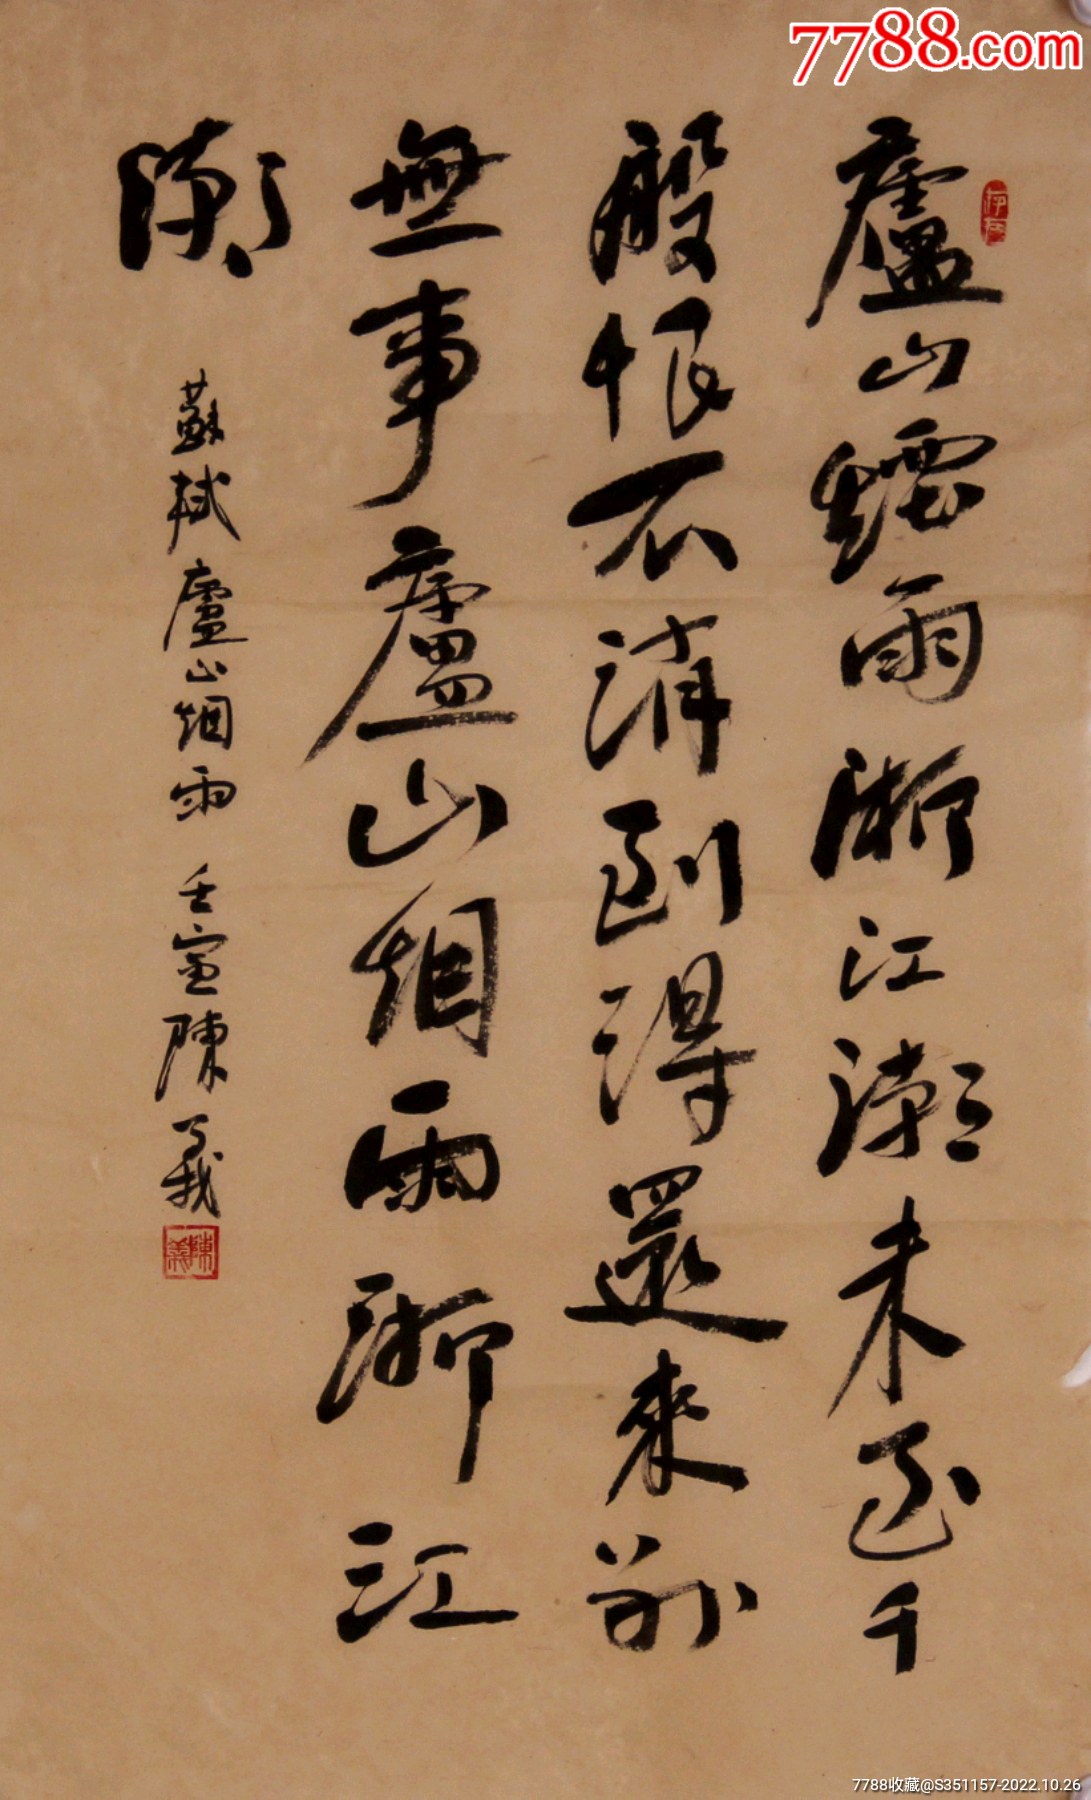 廬山煙雨浙江潮未至千
般恨不消到得還來別
無事廬山烟雨浙江
潮
蘇軾廬山烟雨 壬寅陳義
陳義
7788.com
7788收藏@S351157-2022.10.26